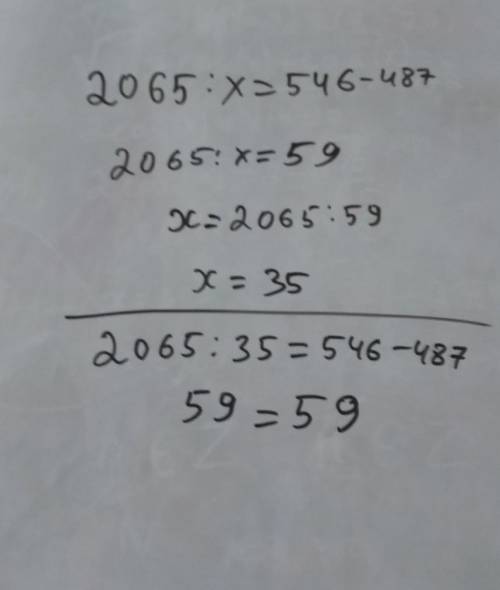 2065 : x = 546 - 487
2065 : x = 59
x = 2065 : 59
x = 35
2065 : 35 = 546 - 487
59 = 59